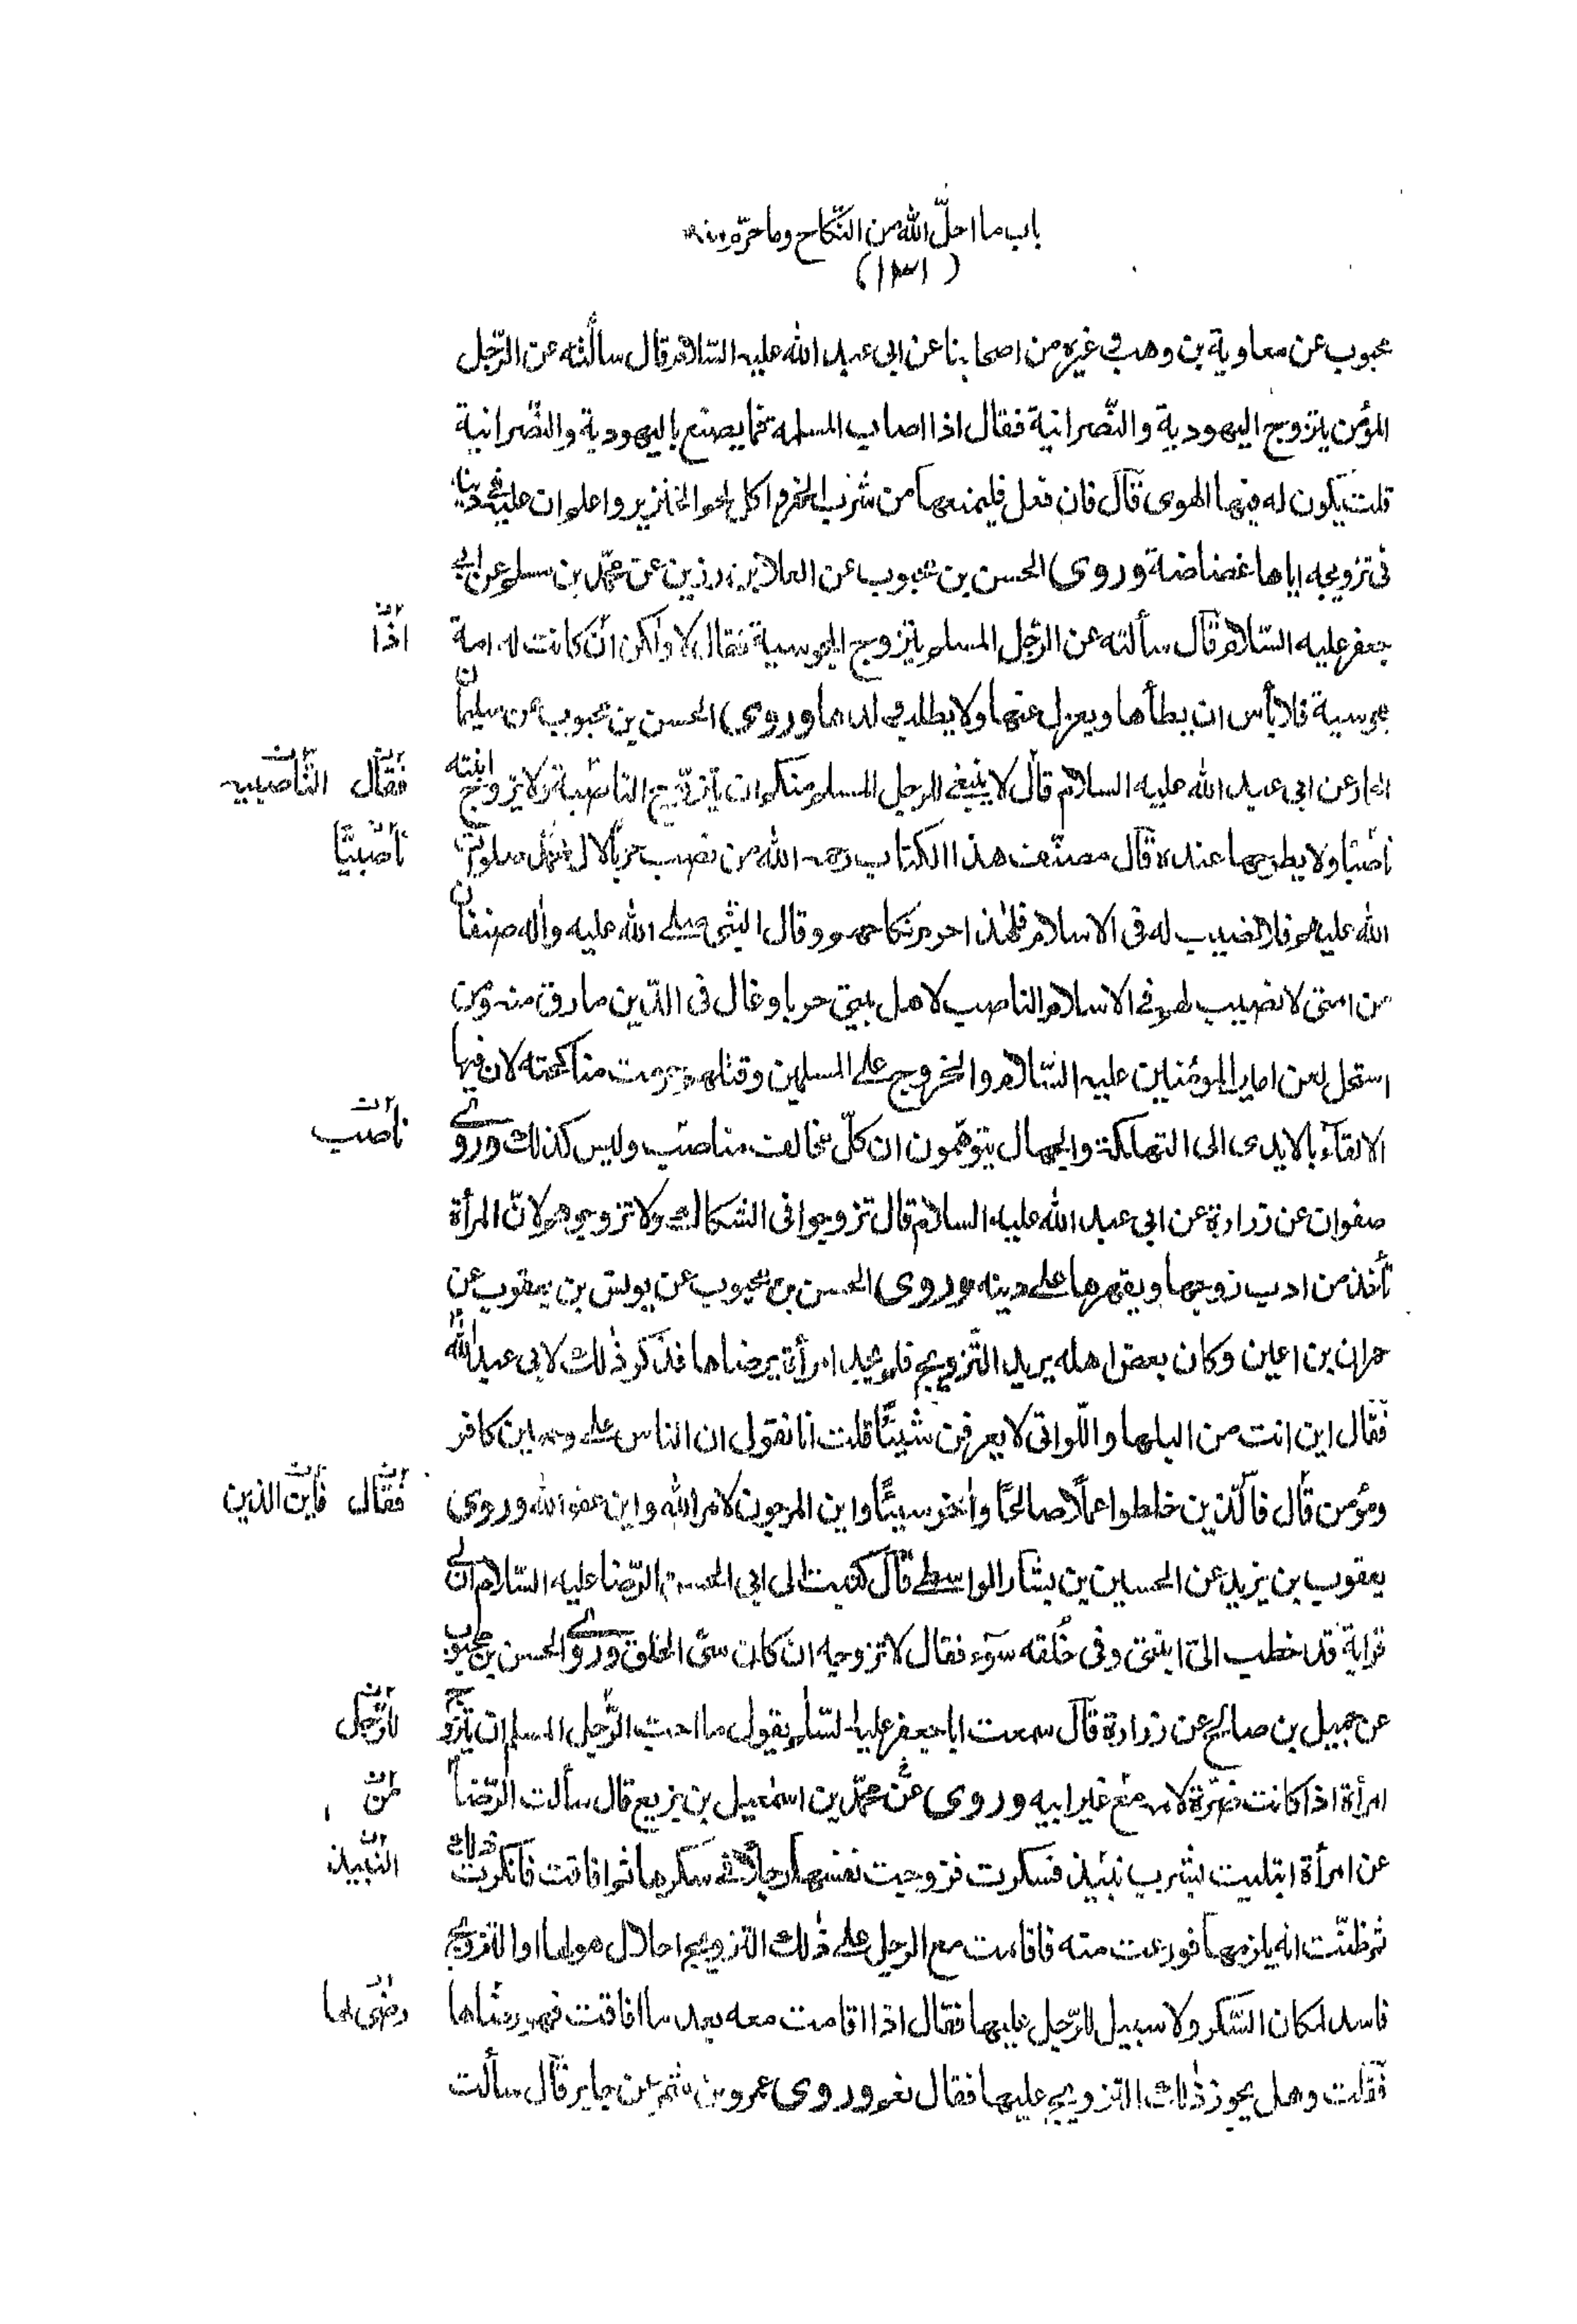 باب ما احلّ الله من النّكاح وما حرّم منه
(١٣١)
محبوب عن معاوية بن وهب فى غيره من اصحابنا عن ابى عبد الله عليه السّلام قال سألته عن الرّجل
المؤمن يتزوج اليهودية والنّصرانية فقال اذا اصاب المسلمة فما يصنع باليهودية والنّصرانية
قلت يكون له فيها الهوى قال فان فعل فليمنعها من شرب الخمر واكل لحم الخنزير واعلم ان عليه فى دينه
فى تزويجه اياها غضاضة وروى الحسن بن محبوب عن العلا بن رزين عن محمّد بن مسلم عن ابى
جعفر عليه السّلام قال سألته عن الرّجل المسلم يتزوج المجوسية فقال لا ولكن ان كانت له امة
اذا
مجوسية فلا بأس ان يطأها ويعزل عنها ولا يطلب ولدها وروى الحسن بن محبوب عن سليمان
الحمار عن ابى عبد الله عليه السلام قال لا ينبغى للرجل المسلم منكم ان يتزوّج الناصبة ولا يزوج ابنته
فقال الناصبية
ناصبا ولا يطرحها عنده قال مصنّف هذا الكتاب رحمه الله من نصب حربا لال محمّد صلوات
ناصبيّا
الله عليهم فلا نصيب له فى الاسلام فلهذا حرم نكاحهم وقال النبّى صلى الله عليه واله صنفان
من امتى لا نصيب لهم فى الاسلام الناصب لاهل بيتى حربا وغال فى الدّين مارق منه ومن
استحل لعن امير المؤمنين عليه السّلام والخروج على المسلمين وقتلهم حرمت مناكحته لان فيها
الالقاء بالايدى الى التهلكة والجهال يتوهّمون ان كلّ مخالف ناصب وليس كذلك وروى
ناصب
صفوان عن زرارة عن ابى عبد الله عليه السلام قال تزوجوا فى الشكاك ولا تزوجوهم لانّ المرأة
تأخذ من ادب زوجها ويقهرها على دينه وروى الحسن بن محبوب عن يونس بن يعقوب عن
حمران بن اعين وكان بعض اهله يريد التّزويج فلم يجد امرأة يرضاها فذكر ذلك لابى عبد الله
فقال اين انت من البلها واللّواتى لا يعرفن شيئًا قلت انا نقول ان الناس على وجهين كافر
ومؤمن قال فالّذين خلطوا عملًا صالحًا واٰخر سيئًا واين المرجون لامر الله واين عفو الله وروى
فقال فاين الذين
يعقوب بن يزيد عن الحسين بن بشار الواسطى قال كتبت الى ابى الحسن الرّضا عليه السّلام ان لى
قرابة قد خطب الىّ ابنتى وفى خلقه سوء فقال لا تزوجه ان كان سىّ الخلق وروى الحسن بن محبوب
عن جميل بن صالح عن زرارة قال سمعت ابا جعفر عليه السّلم يقول ما احب الرّجل المسلم ان يتزوج
للرّجل
امرأة اذا كانت ضرّة لامه مع غير ابيه وروى عن محمّد بن اسمعيل بن بزيع قال سألت الرّضا
عن امرأة ابتليت بشرب نبيذ فسكرت فزوجت نفسها رجلًا فى سكرها ثم افاقت فانكرت ذلك
النّبيذ
ثم ظنّت انه يلزمها فورعت منه فاقامت مع الرجل على ذلك التزويج احلال هو لها او التزويج
فاسد لمكان السّكر ولا سبيل للرّجل عليها فقال اذا اقامت معه بعد ما افاقت فهو رضاها
رضى لها
فقلت وهل يجوز ذلك التزويج عليها فقال نعم وروى عمرو بن شمر عن جابر قال سألت